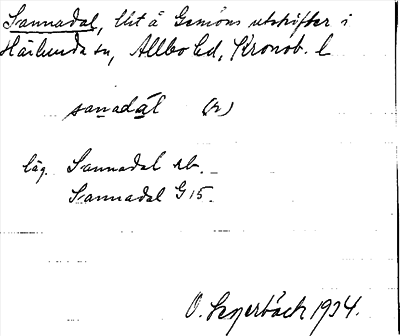 Sannadal, lht å Gemöns utskifter i
Härlunda sn, Allbo hd, Kronob. l
sanadál (r)
låg. Sannadal rb.
Sannadal G 15.
O. 1934.